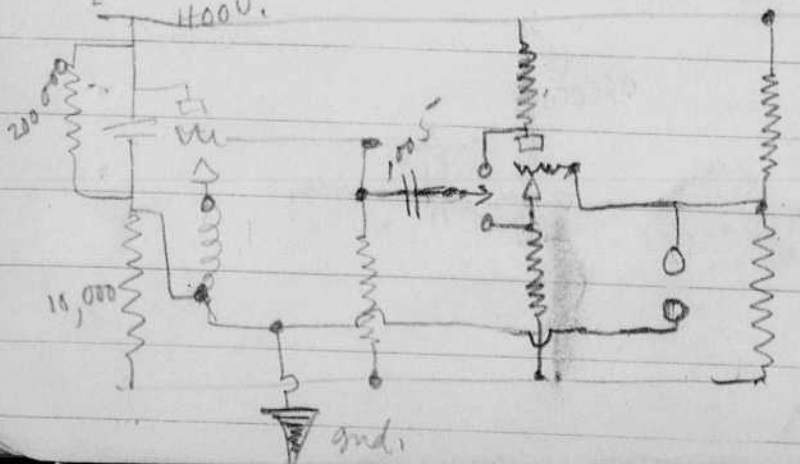 1100V.
200 000
.005
10,000
gnd.